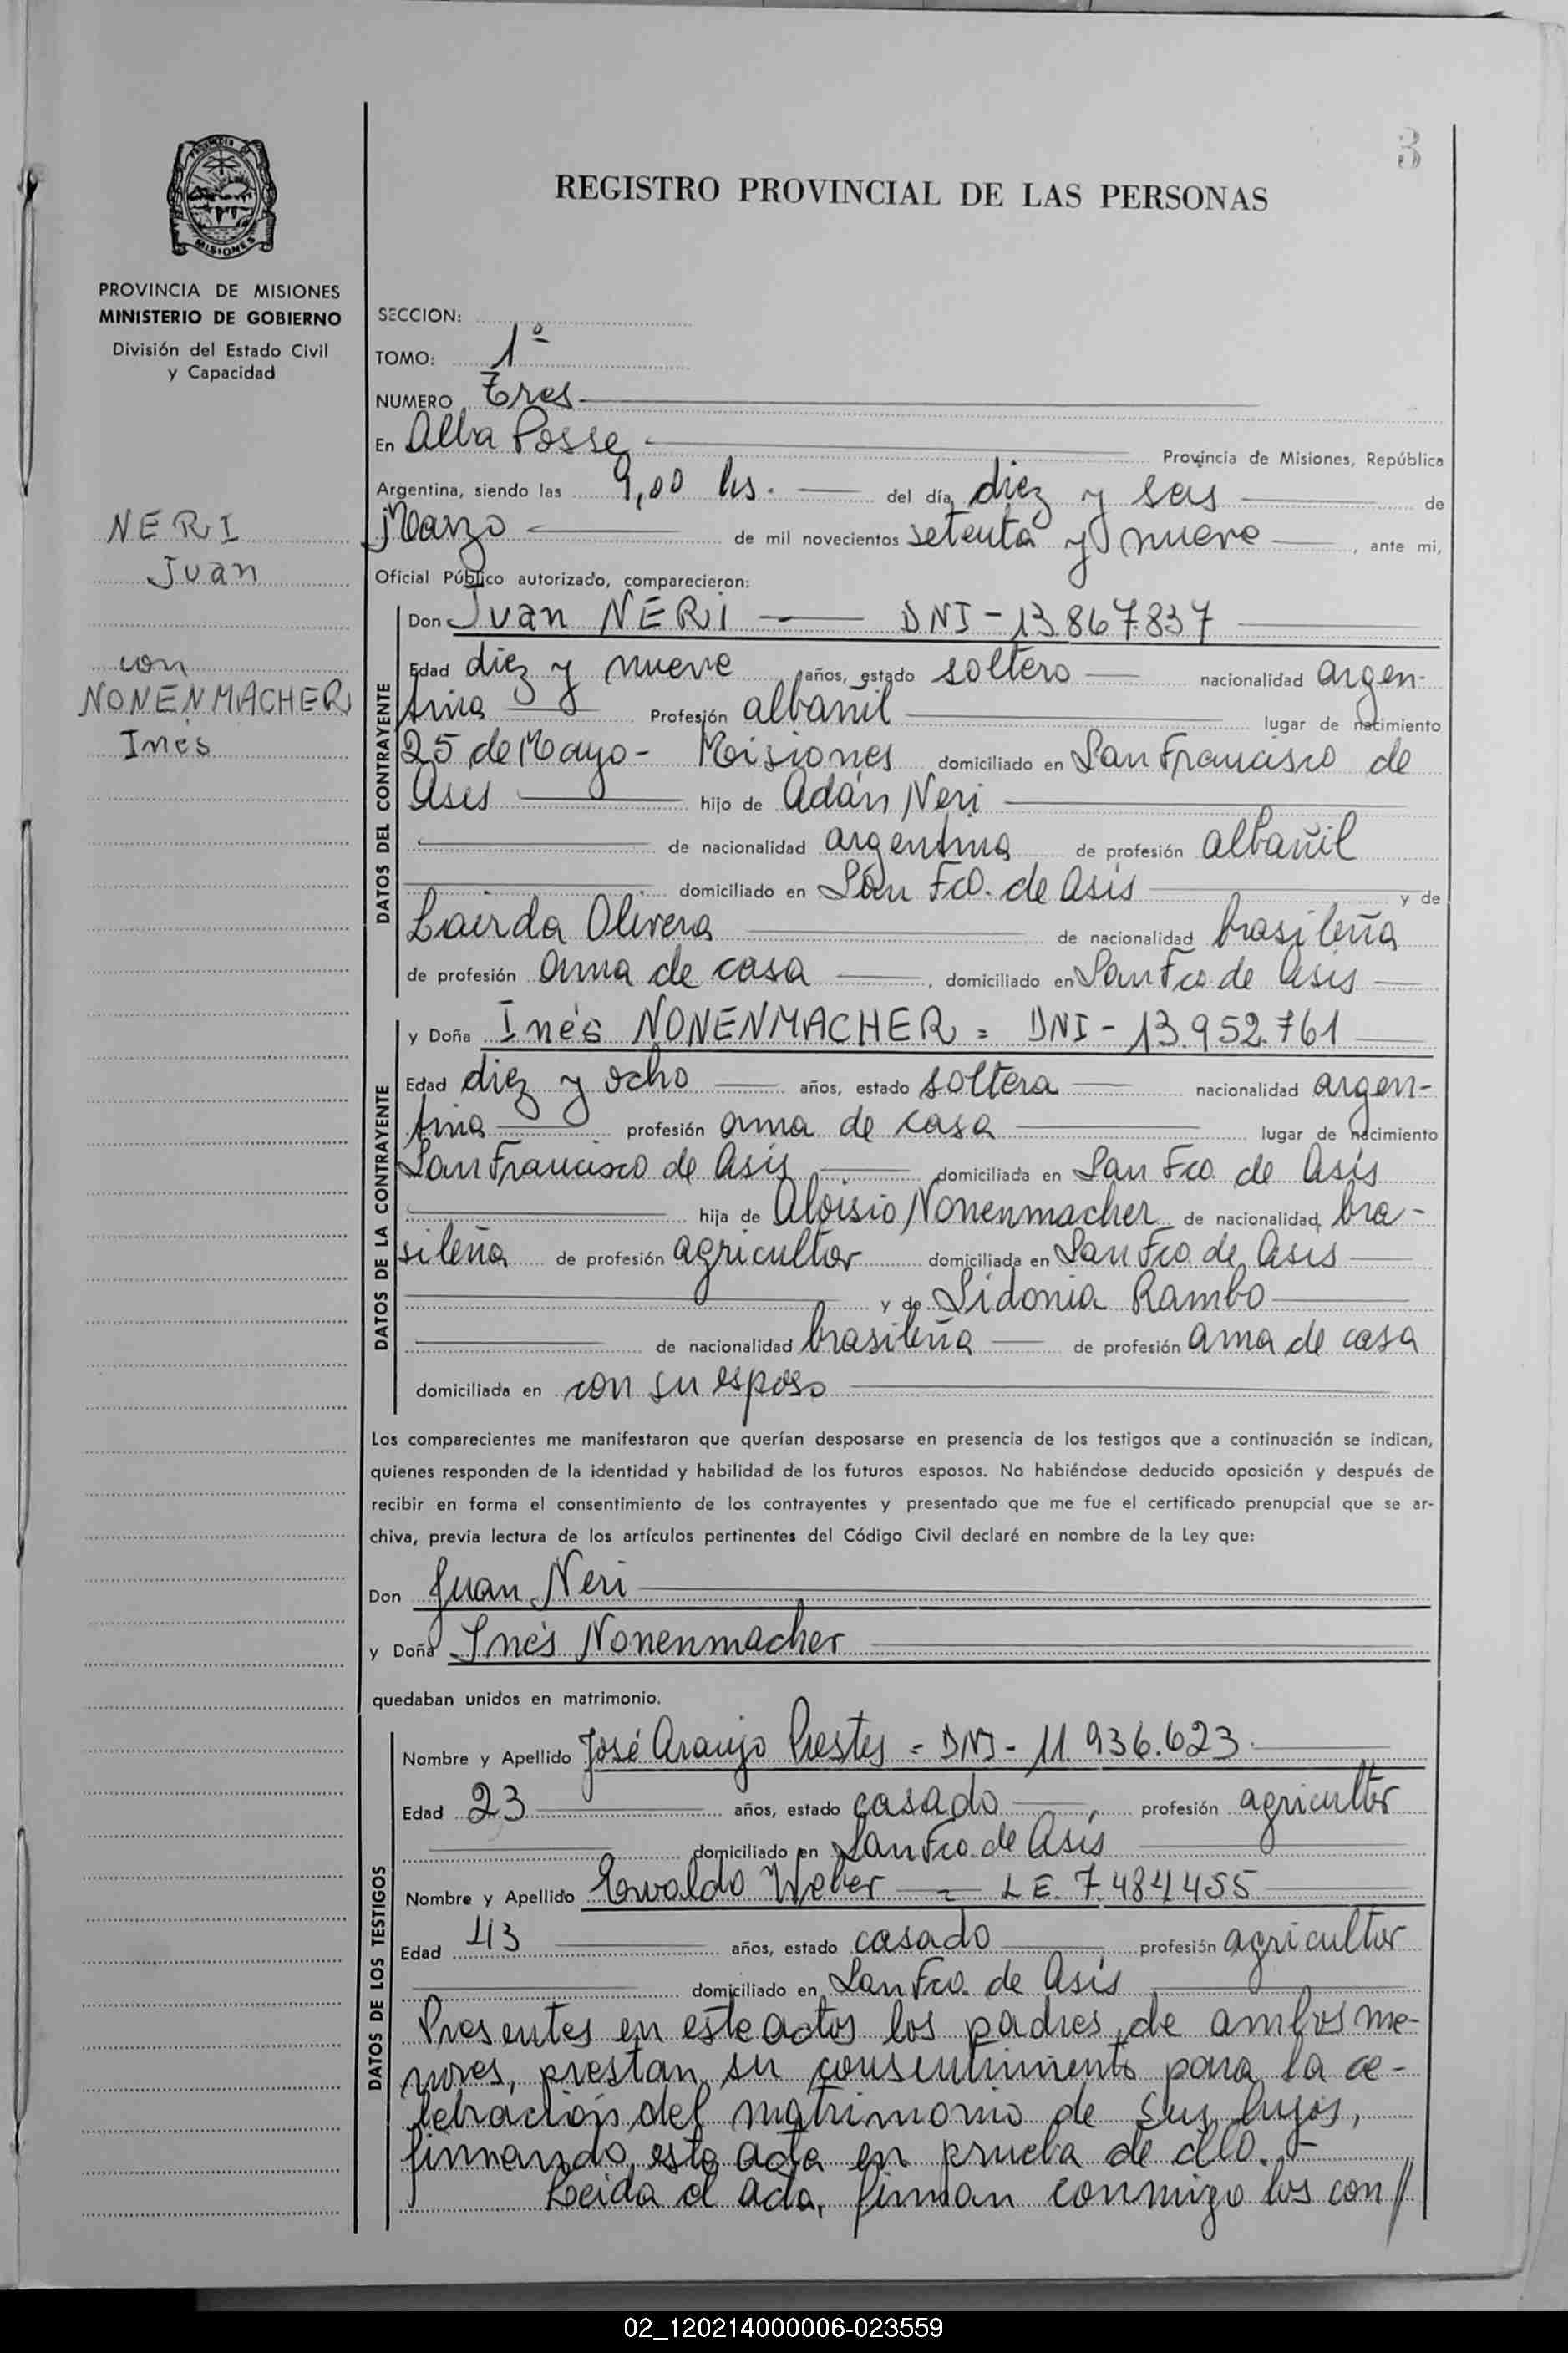 3
REGISTRO PROVINCIAL DE LAS PERSONAS
MISIONES
PROVINCIA DE MISIONES
MINISTERIO DE GOBIERNO
División del Estado Civil
y Capacidad
SECCION:
TOMO: 1º
NUMERO Tres
En Alba Posse Provincia de Misiones, República
Argentina, siendo las 9,00 hs. del día diez y seis de
Marzo de mil novecientos setenta y nueve, ante mi,
Oficial Público autorizado, comparecieron:
NERI
Juan
con
NONENMACHER
Inés
DATOS DEL CONTRAYENTE
Don Juan NERI - DNI - 13.867.837
Edad diez y nueve años, estado soltero nacionalidad argen-
tina Profesión albañil lugar de nacimiento
25 de Mayo - Misiones domiciliado en San Francisco de
Asis hijo de Adán Neri
de nacionalidad argentina de profesión albañil
domiciliado en San Fco. de Asis y de
Olivera de nacionalidad brasileña
de profesión ama de casa, domiciliado en San Fco de Asis
DATOS DE LA CONTRAYENTE
y Doña Inés NONENMACHER = DNI - 13.952.761
Edad diez y ocho años, estado soltera nacionalidad argen-
tina profesión ama de casa lugar de nacimiento
San Francisco de Asis domiciliada en San Fco de Asis
hija de Aloisio Nonenmacher de nacionalidad bra-
sileña de profesión agricultor domiciliada en San Fco de Asis
y de Sidonia Rambo
de nacionalidad brasileña de profesión ama de casa
domiciliada en con su esposo
Los comparecientes me manifestaron que querían desposarse en presencia de los testigos que a continuación se indican,
quienes responden de la identidad y habilidad de los futuros esposos. No habiéndose deducido oposición y después de
recibir en forma el consentimiento de los contrayentes y presentado que me fue el certificado prenupcial que se ar-
chiva, previa lectura de los artículos pertinentes del Código Civil declaré en nombre de la Ley que:
Don Juan Neri
y Doña Inés Nonenmacher
quedaban unidos en matrimonio.
DATOS DE LOS TESTIGOS
Nombre y Apellido José Araujo Prestes = DNI - 11.936.623
Edad 23 años, estado casado, profesión agricultor
domiciliado en San Fco. de Asis
Nombre y Apellido Ewaldo Weber = L E. 7.484455
Edad 43 años, estado casado profesión agricultor
domiciliado en San Fco. de Asis
Presentes en este actos los padres de ambos me-
nores, prestan su consentimiento para la ce-
lebración del matrimonio de sus hijos,
firmando esta acta en prueba de ello. -
Leida el acta, firman conmigo los con//
02_120214000006-023559